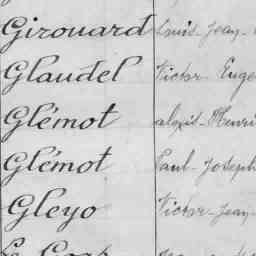 Girouard Louis-Jean-
Glaudel Victor-Euge
Glémot Alexis-Henri
Glémot Paul-Joseph
Gleyo Victor-Jean-
Le